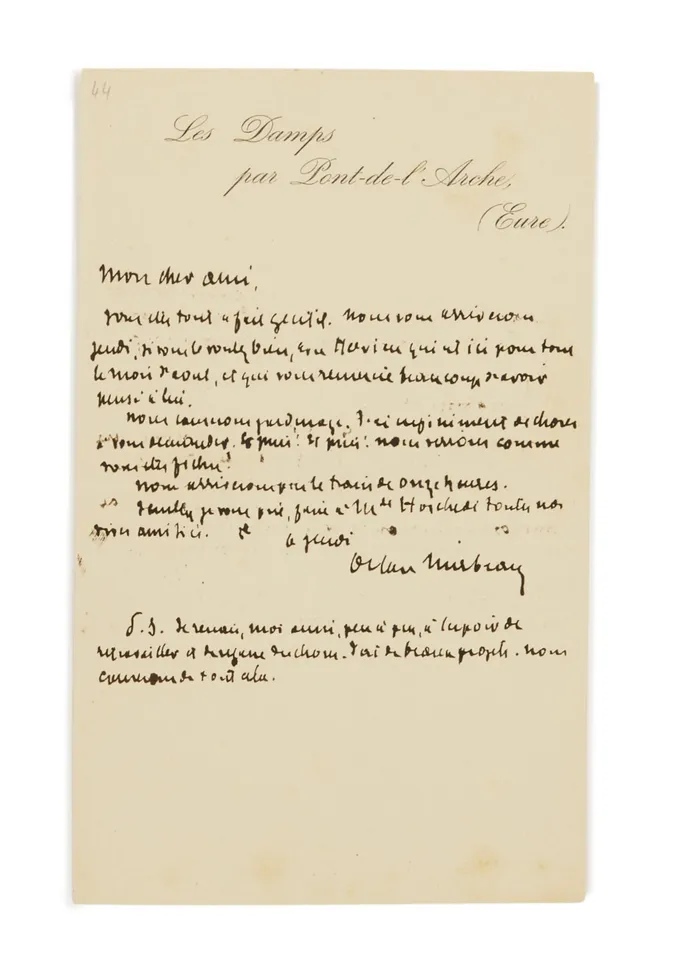 44
Les Damps
par Pont-de-l'Arche,
(Eure).
Mon cher ami,
Vous êtes tout à fait gentil. Nous vous arriverons
jeudi, si vous le voulez bien, avec Hervieu qui est ici pour tout
le mois d'août, et qui vous remercie beaucoup d'avoir
pensé à lui.
Nous causerons jardinage. J'ai infiniment de choses
à vous demander. Et puis! Et puis! nous verrons comme
vous êtes fichu!
Nous arriverons par le train de onze heures.
Veuillez je vous prie, faire à Mde Hoschedé toutes nos
vives amitiés. Et
à jeudi
Octave Mirbeau
P. S. Je renais, moi aussi, peu à peu, à l'espoir de
retravailler et de faire des choses. J'ai de beaux projets. Nous
causerons de tout cela.